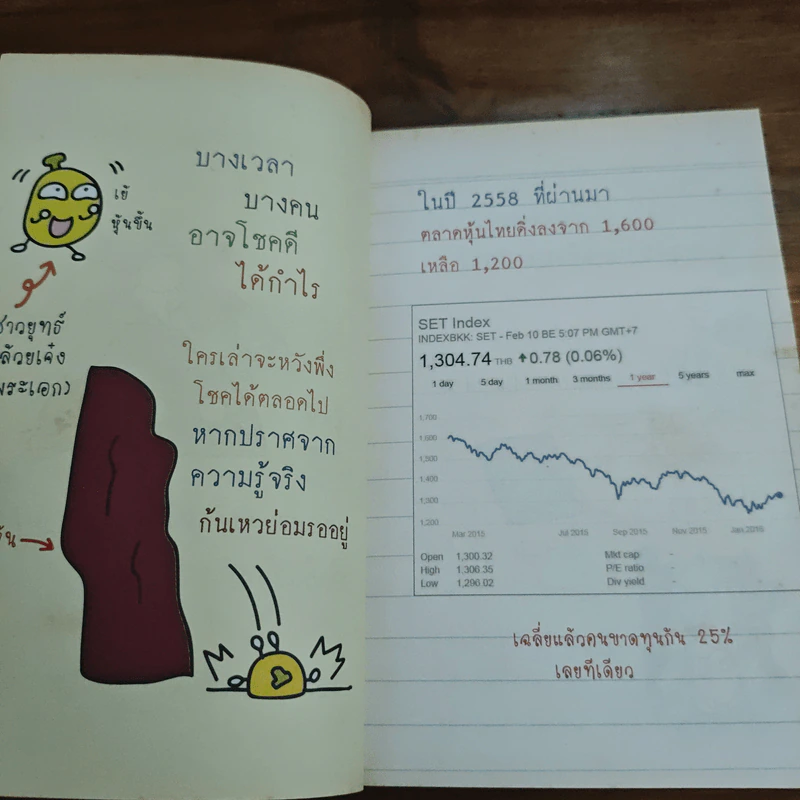 เย้
หุ้นขึ้น
บางเวลา
บางคน
อาจโชคดี
ได้กำไร
ใครเล่าจะหวังพึ่ง
โชคได้ตลอดไป
หากปราศจาก
ความรู้จริง
ก้นเหวย่อมรออยู่
ในปี 2558 ที่ผ่านมา
ตลาดหุ้นไทยดิ่งลงจาก 1,600
เหลือ 1,200
SET Index
INDEXBKK: SET - Feb 10 BE 5:07 PM GMT+7
1,304.74 THB ↑0.78 (0.06%)
1 day 5 day 1 month 3 months 1 year 5 years max
1,700
1,600
1,500
1,400
1,300
1,200
Mar 2015 Jul 2015 Sep 2015 Nov 2015 Jan 2016
Open 1,300.32 Mkt cap -
High 1,306.35 P/E ratio -
Low 1,290.02 Div yield -
เฉลี่ยแล้วคนขาดทุนกัน 25%
เลยทีเดียว